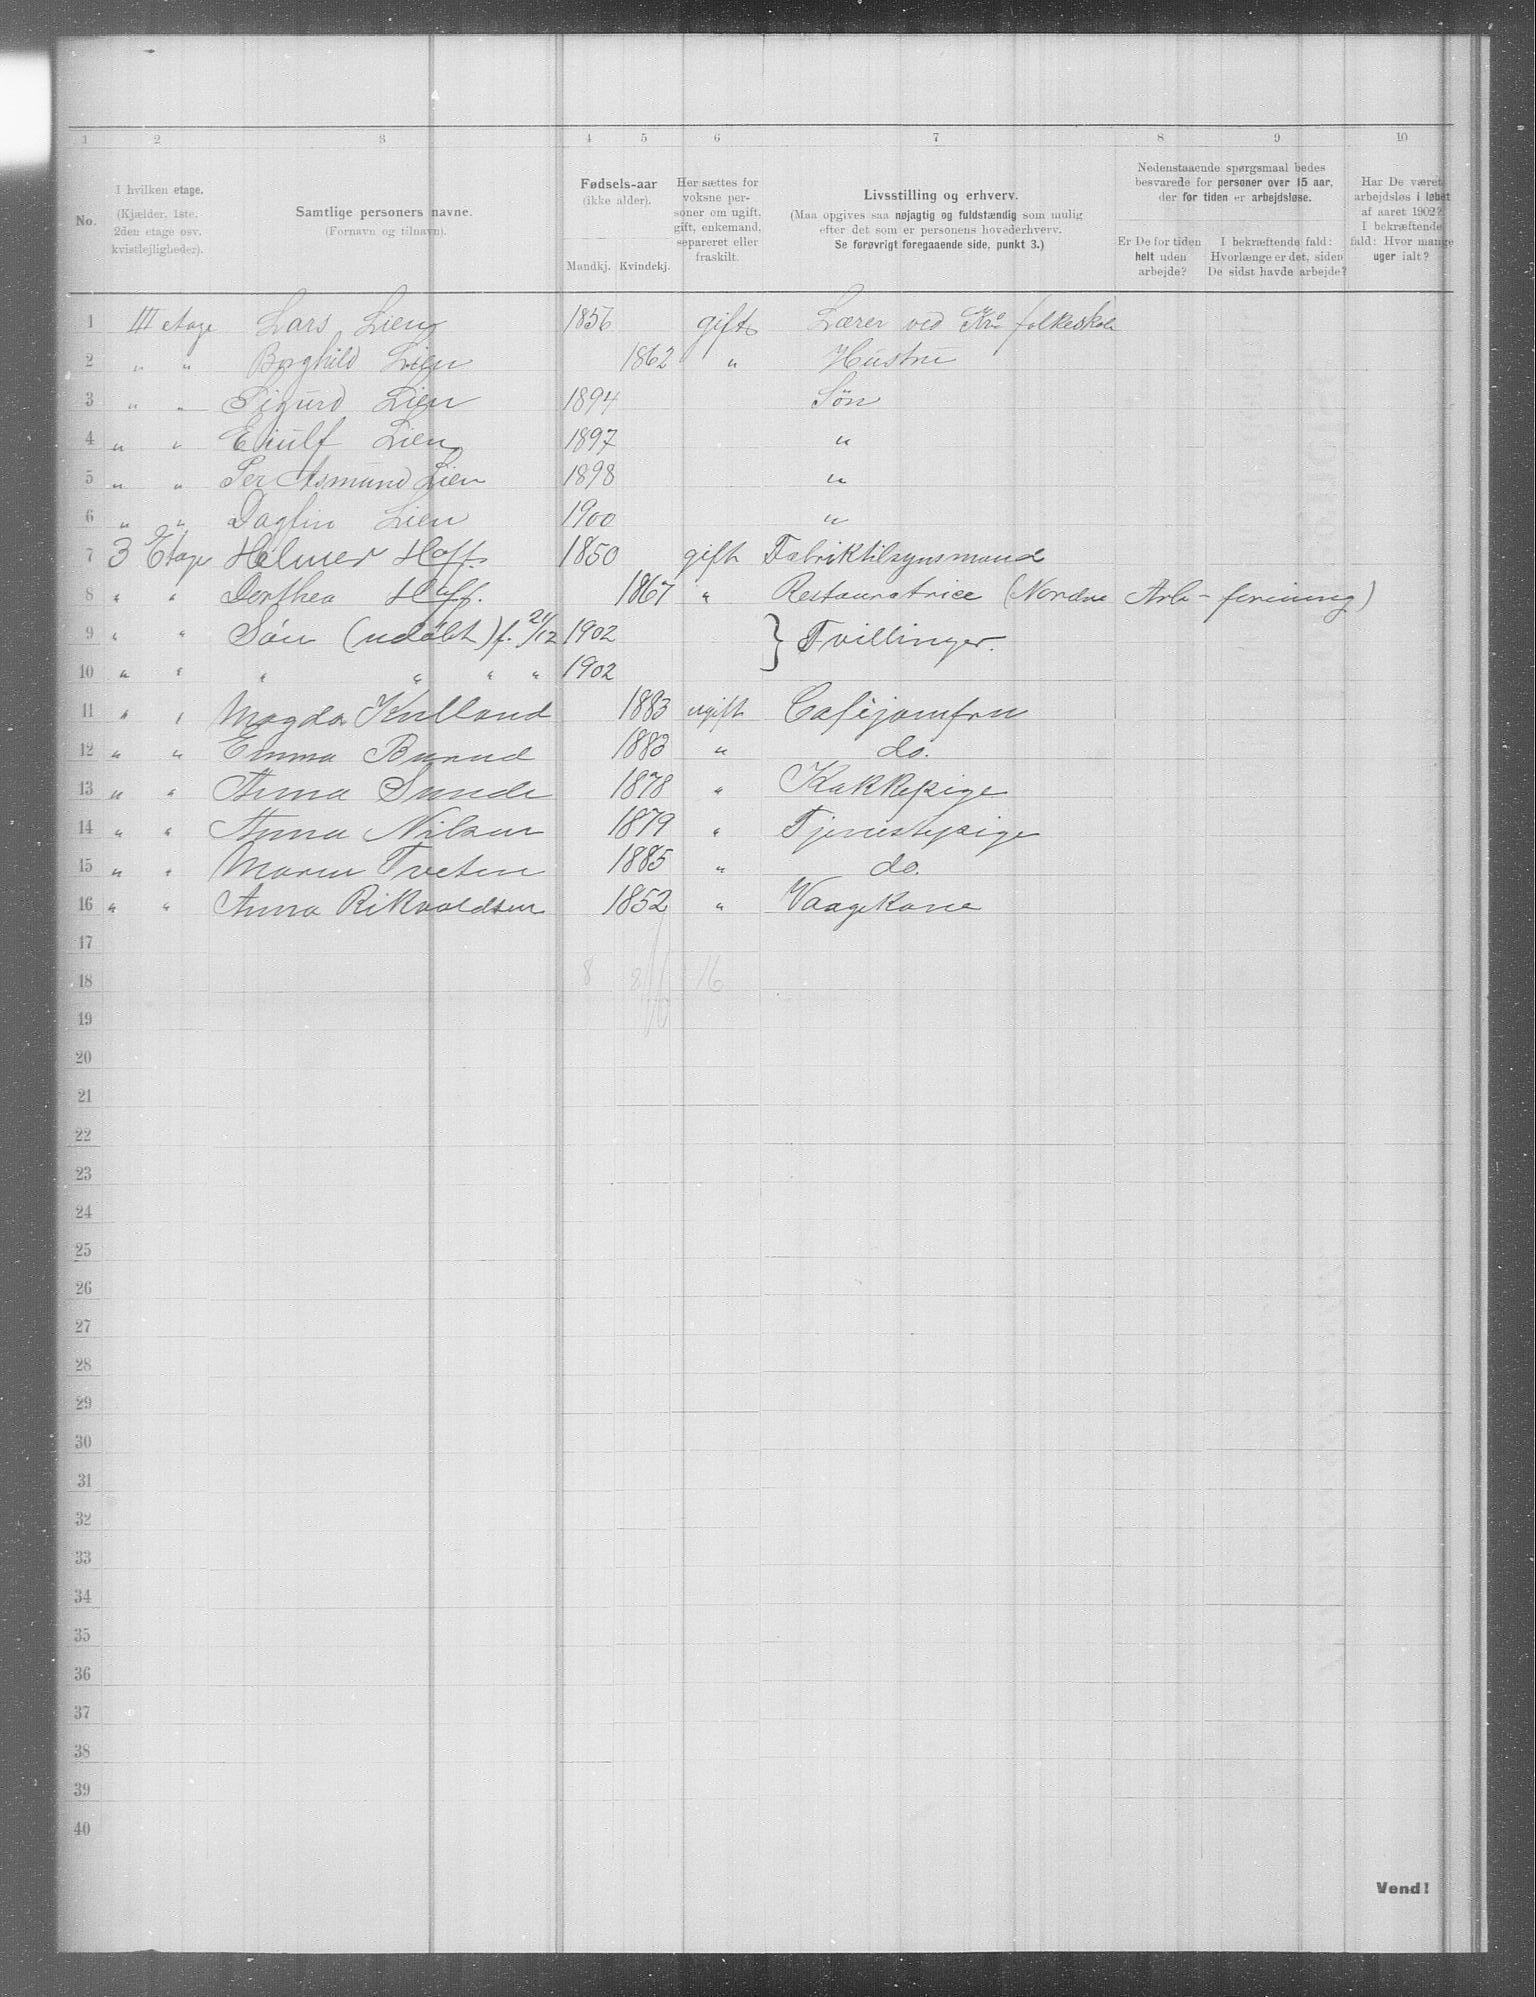 1 2 3 4 5 6 7 8 9 10
No.
I hvilken etage.
(Kjælder, 1ste.
2den etage osv.
kvistlejligheder).
Samtlige personers navne.
(Fornavn og tilnavn).
Fødsels-aar
(ikke alder).
Mandkj. Kvindekj.
Her sættes for
voksne per-
soner om ugift,
gift, enkemand,
separeret eller
fraskilt.
Livsstilling og erhverv.
(Maa opgives saa nøjagtig og fuldstændig som mulig
efter det som er personens hovederhverv.
Se forøvrigt foregaaende side, punkt 3.)
Nedenstaaende spørgsmaal bedes
besvarede for personer over 15 aar,
der for tiden er arbejdsløse.
Er De for tiden
helt uden
arbejde?
I bekræftende fald:
Hvorlænge er det, siden
De sidst havde arbejde?
Har De været
arbejdsløs i løbet
af aaret 1902?
I bekræftende
fald: Hvor mange
uger ialt?
1 III etage Lars Lien 1856 gift Lærer ved Kra folkeskole
2 " " Borghild Lien 1862 " Hustru
3 " " Sigurd Lien 1894 Søn
4 " " Eiulf Lien 1897 "
5 " " Per Asmund Lien 1898 "
6 " " Dagfin Lien 1900 "
7 3 Etage Helmer Hoff. 1850 gift Fabriktilsynsmand
8 " " Dorthea Hoff. 1867 " Restauratrice (Nordre Arb-forening)
9 " " Søn (udøbt) f. 21/12 1902 } Tvillinger.
10 " " " " " " 1902
11 " " Magda Kulland 1883 ugift Caféjomfru
12 " " Emma Burud 1883 " do.
13 " " Anna Sunde 1878 " Kokkepige
14 " " Anna Nilsen 1879 " Tjenestepige
15 " " Maren Tveten 1885 " do.
16 " " Anna Rikvoldsen 1852 " Vaagekone
17
18 8 8 16
19
20
21
22
23
24
25
26
27
28
29
30
31
32
33
34
35
36
37
38
39
40
Vend!